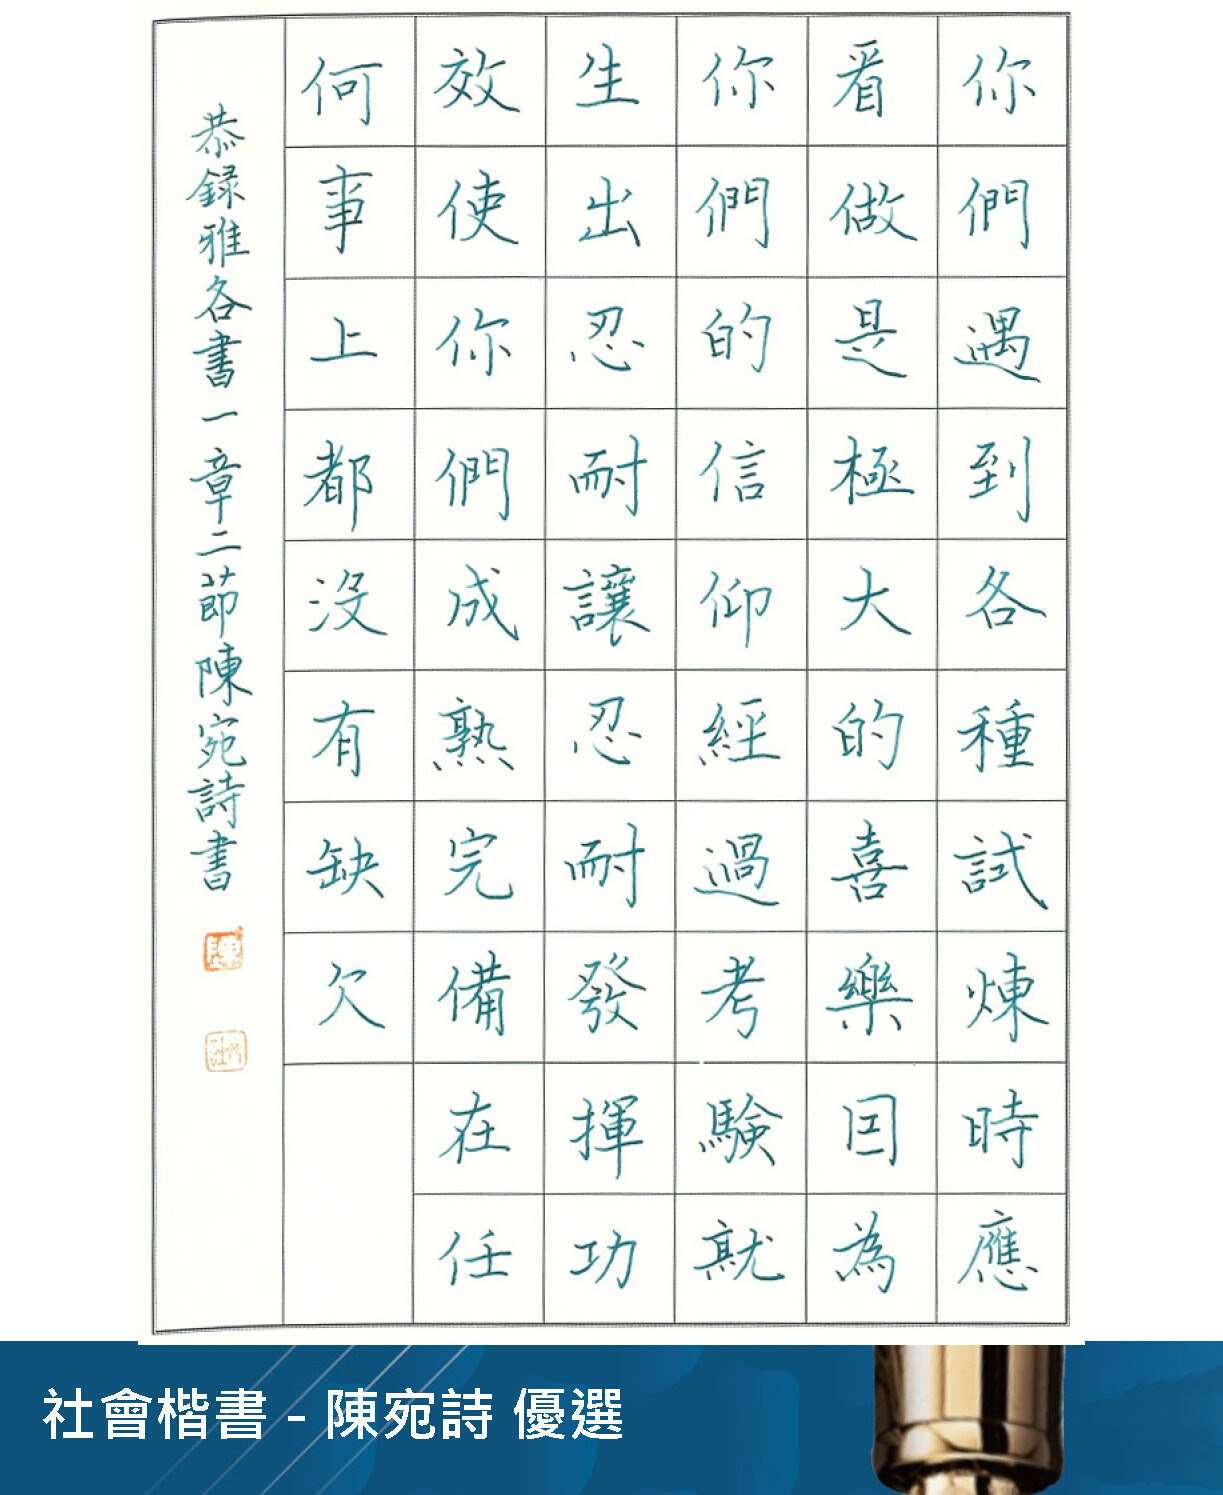 你們遇到各種試煉時應
看做是極大的喜樂因為
你們的信仰經過考驗就
生出忍耐讓忍耐發揮功
效使你們成熟完備在任
何事上都沒有缺欠
恭錄雅各書一章二節陳宛詩書
陳
社會楷書 - 陳宛詩 優選